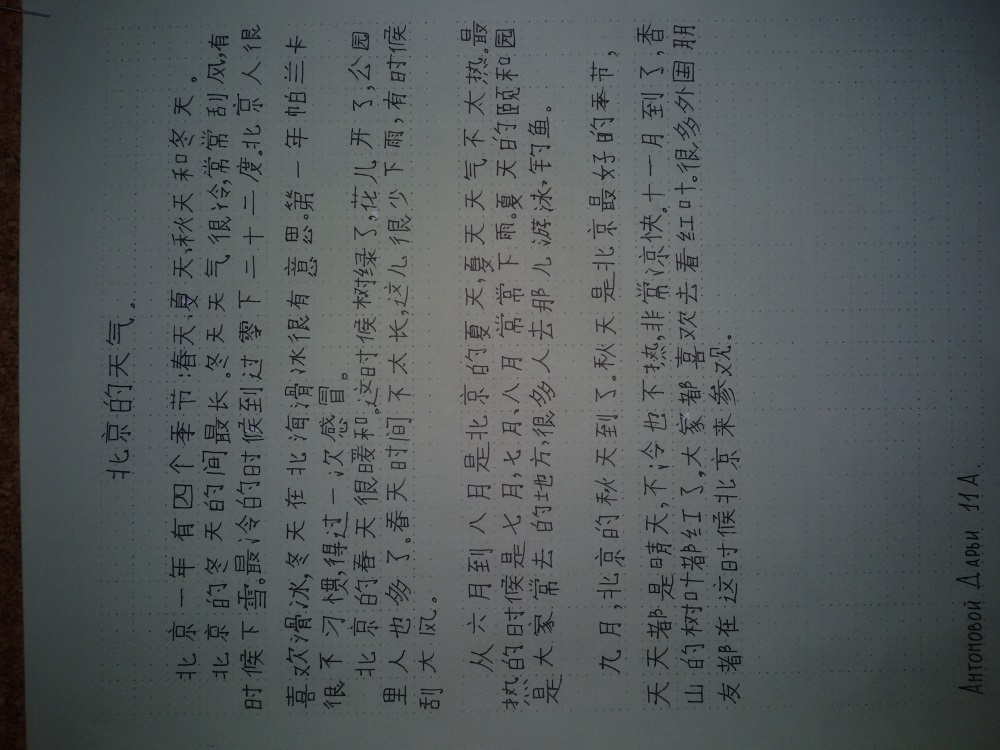 北京的天气。
北京一年有四个季节:春天、夏天、秋天和冬天。
北京的冬天的间最长。冬天天气很冷,常常刮风,有
时候下雪。最冷的时候到过零下二十二度。北京人很
喜欢滑冰,冬天在北海滑冰很有意思。第一年帕兰卡
很不习惯,得过一次感冒。
北京的春天很暖和。这时候树绿了,花儿开了,公园
里人也多了。春天时间不太长,这儿很少下雨,有时候
刮大风。
从六月到八月是北京的夏天,夏天天气不太热。最
热的时候是七月,七月、八月常常下雨。夏天的颐和园
是大家常去的地方,很多人去那儿游泳,钓鱼。
九月,北京的秋天到了。秋天是北京最好的季节,
天天都是晴天,不冷也不热,非常凉快。十一月到了,香
山的树叶都红了,大家都喜欢去看红叶。很多外国朋
友都在这时候北京来参观。
Антоновой Дарьи 11А